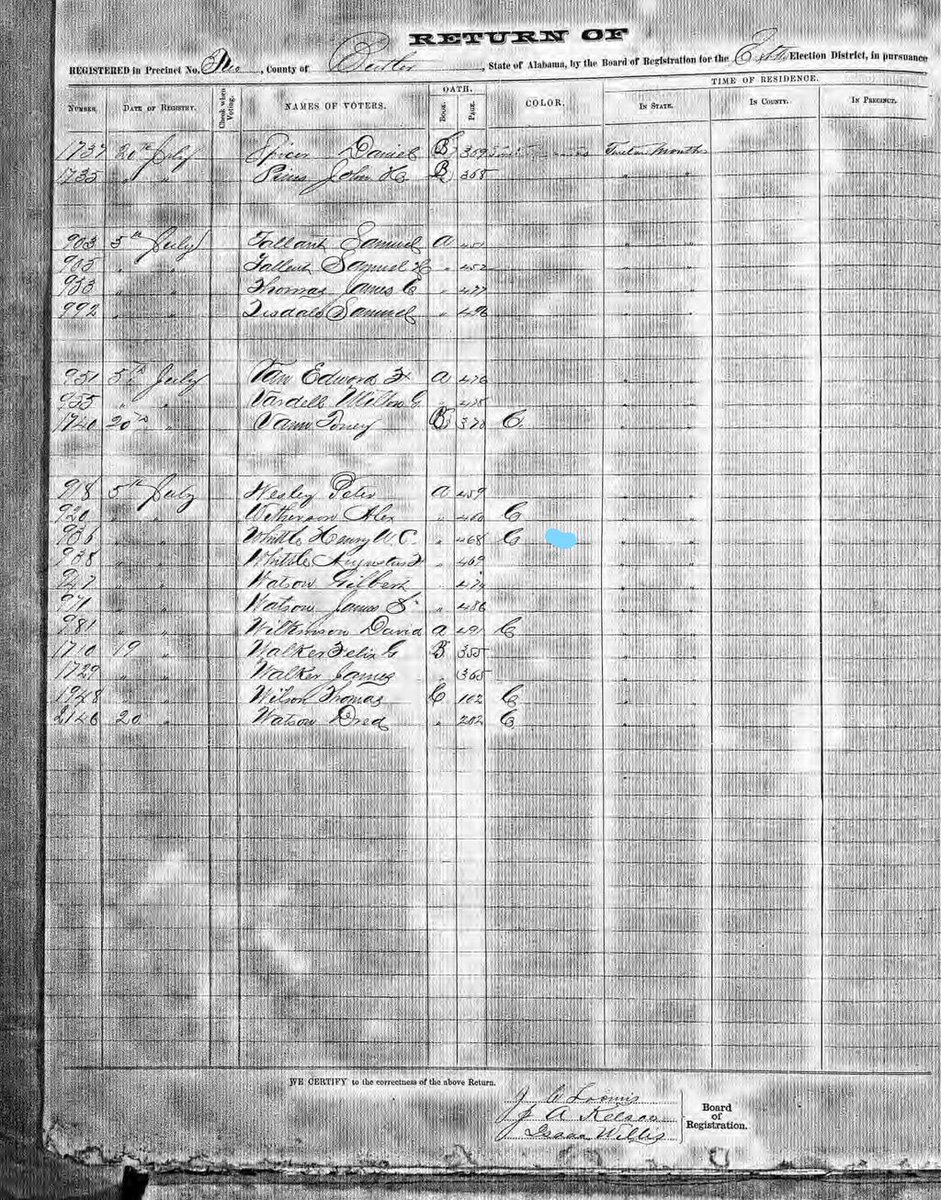 RETURN OF
REGISTERED in Precinct No. , County of Butler, State of Alabama, by the Board of Registration for the Election District, in pursuance
OATH. TIME OF RESIDENCE.
NUMBER. DATE OF REGISTRY. Check when Voting. NAMES OF VOTERS. BOOK. PAGE. COLOR. IN STATE. IN COUNTY. IN PRECINCT.
1737 20th July Spicer Daniel B 369 Twelve Months
1735 " " John B 368 " "
903 5th July Tallant Samuel a 451 " "
905 " " Tallent Samuel " 452 " "
953 " " Thomas James C " 477 " "
992 " " Tisdale Samuel " 496 " "
951 5th July Edward a 476 " "
955 " " Vardell G. " 478 " "
1740 20th " Vann Toney B 370 C. " "
918 5th July Wesley Peter a 459 " "
920 " " Alex " 460 C " "
936 " " Whittle Henry W C. " 468 C " "
938 " " Whittle Augustus " 469 " "
947 " " Watson Gilbert " 474 " "
971 " " Watson James " 486 " "
981 " " Wilkinson David a 491 C " "
1710 19 " Walker Felix G B 355 " "
1729 " " Walker James " 365 " "
1948 " " Wilson Thomas C 102 C " "
2146 20 " Watson Dred " 202 C " "
WE CERTIFY to the correctness of the above Return.
J C Loomis
J A Kelsoe
Isaac Willis
Board
of
Registration.